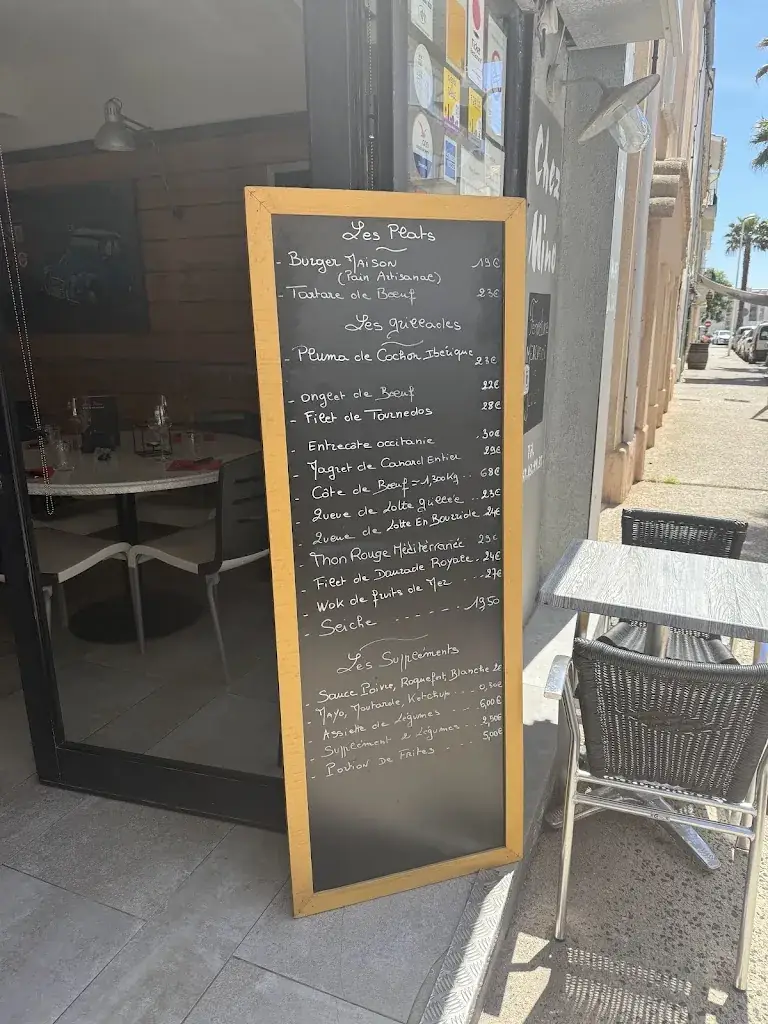 Les Plats
- Burger Maison 19€
(Pain Artisanal)
- Tartare de Bœuf 23€
Les grillades
- Pluma de Cochon Ibérique 23€
- onglet de Bœuf 22€
- Filet de Tournedos 28€
- Entrecote occitanie 30€
- Magret de Canard Entier 29€
- Côte de Bœuf ≈ 1,300Kg .. 68€
- Queue de Lotte grillée .. 23€
- Queue de Lotte En Bourride . 24€
- Thon Rouge Méditérranée 29€
- Filet de Daurade Royale . 24€
- Wok de fruits de Mer . . . 27€
- Seiche - - - - - . 19,50
Les Suppléments
- Sauce Poivre, Roquefort, Blanche 2€
- Mayo, Moutarde, Ketchup . . . 0,50€
- Assiette de Légumes . . . . 6,00€
- Supplément de Légumes . . . 2,50€
- Portion de Frites - - - - 5,00€
Chez
Mino